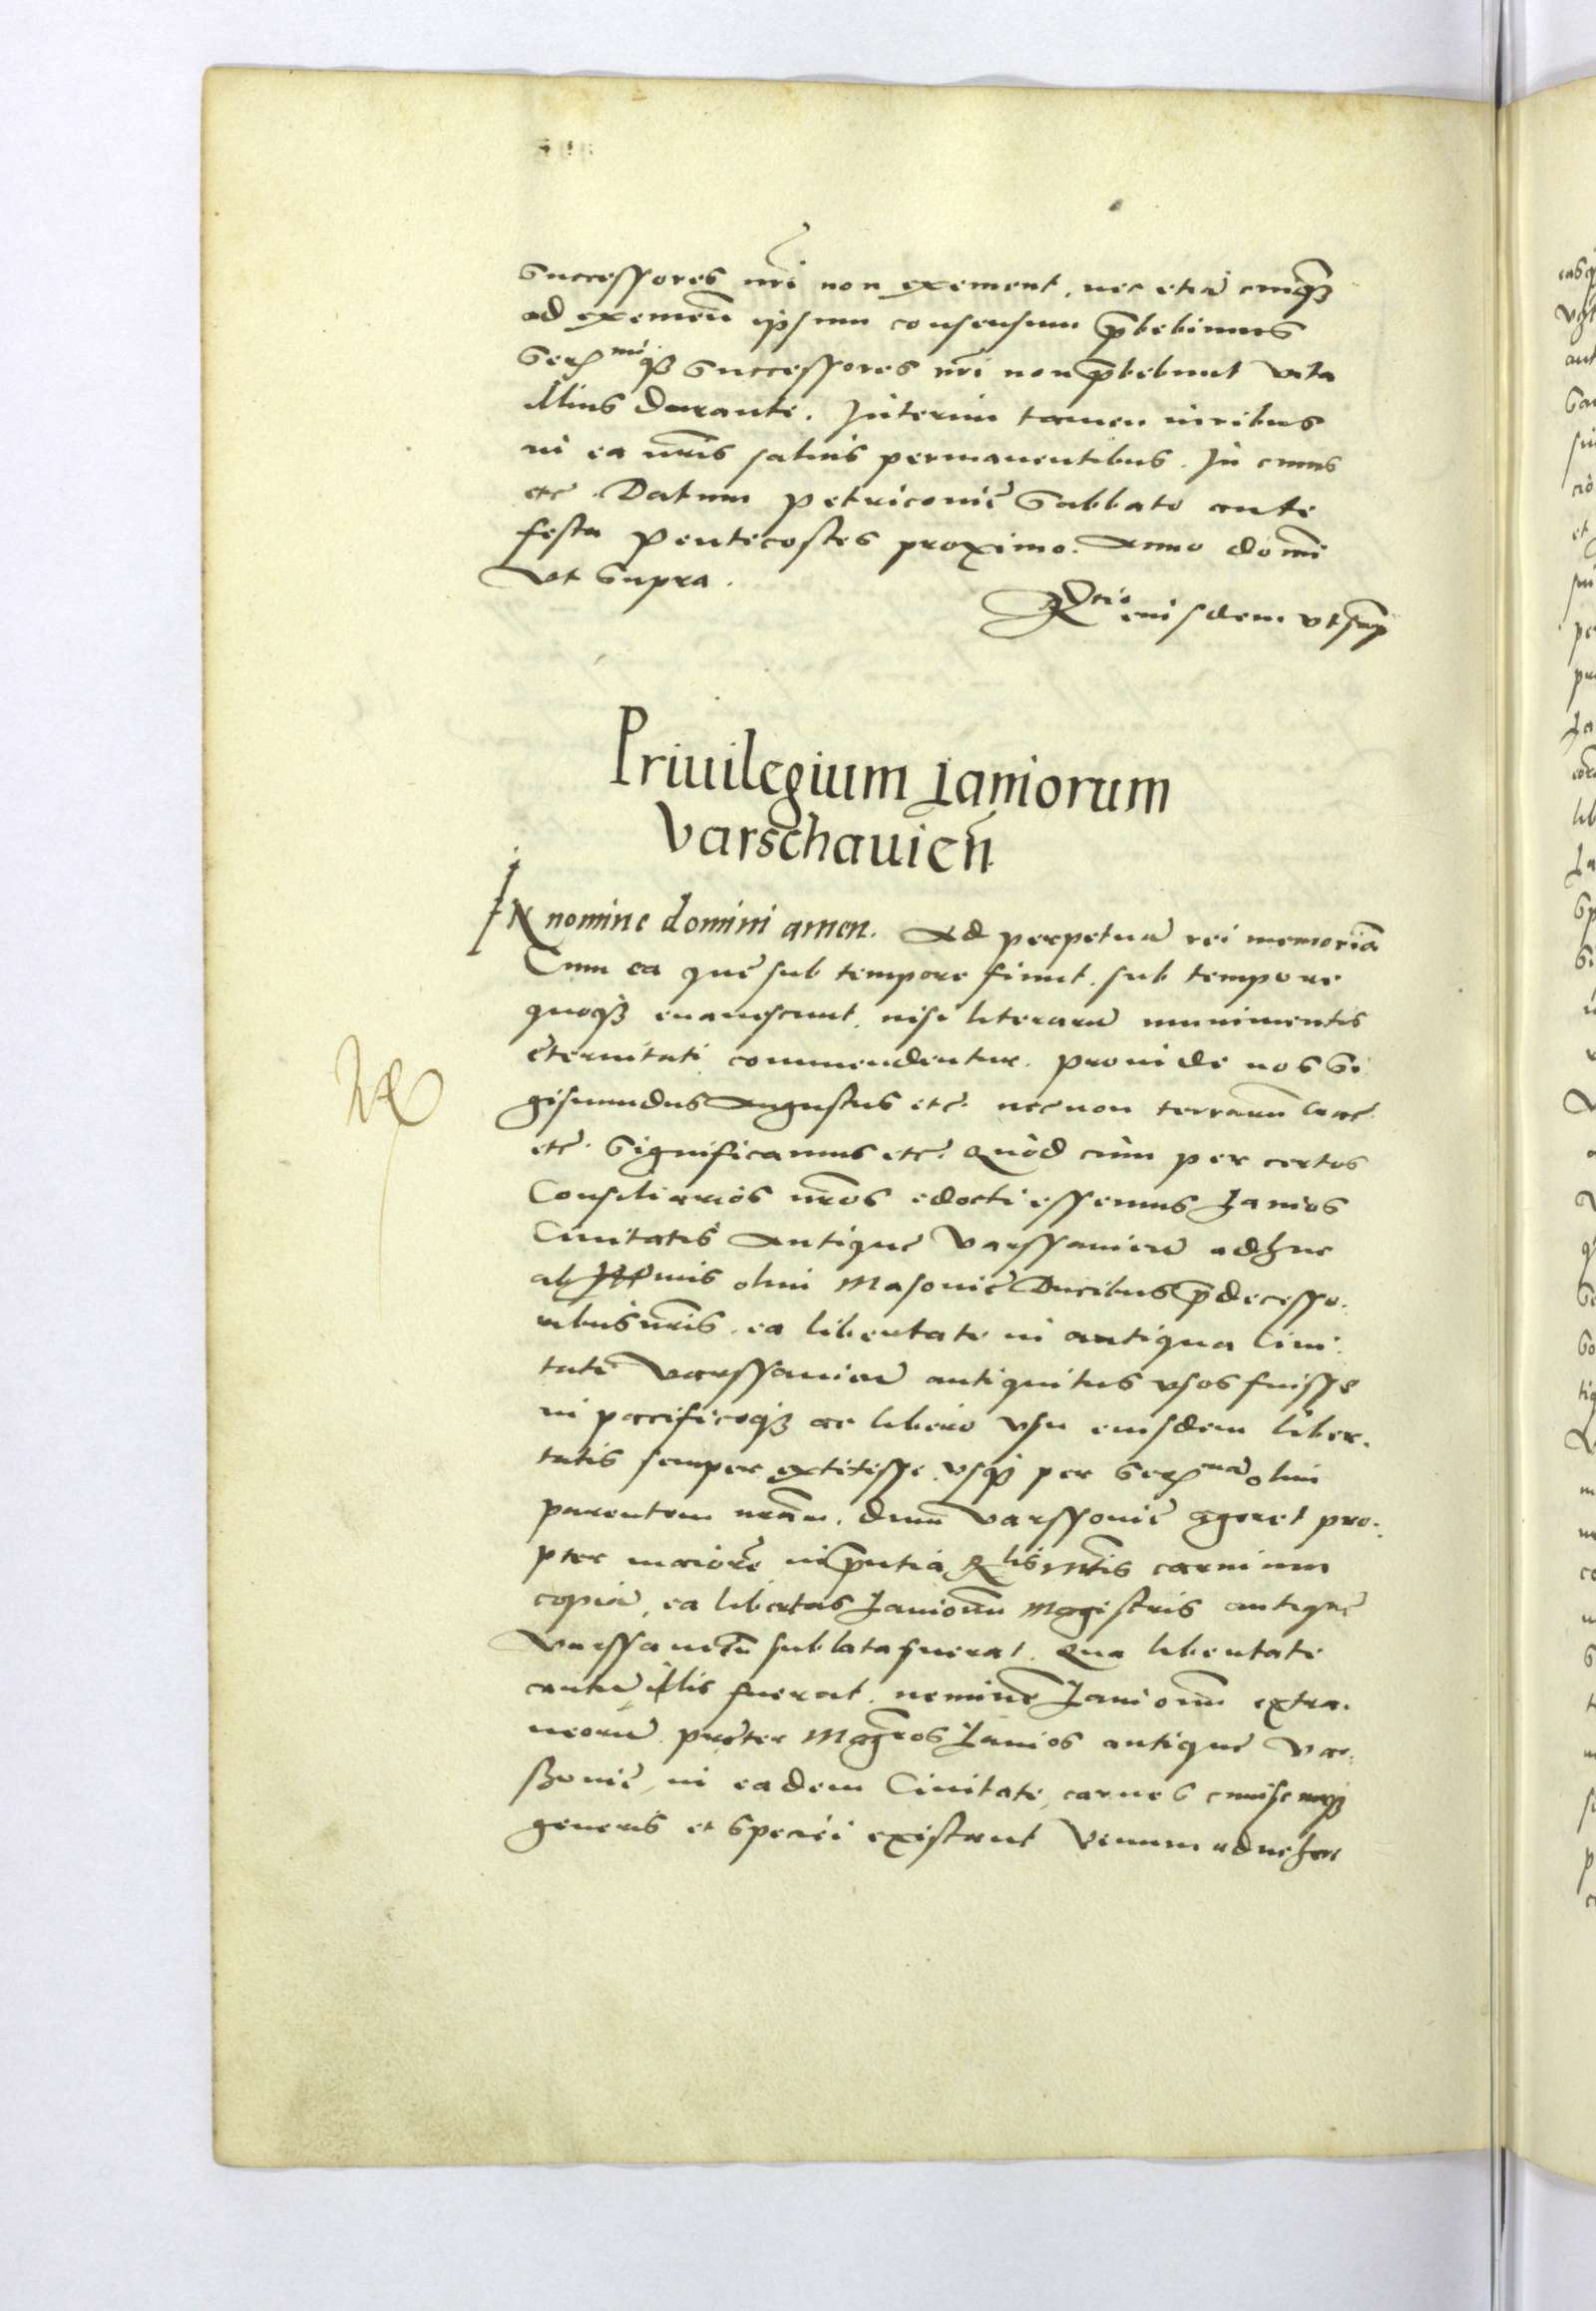 Successores nr̃i non exement, nec etiã cuiq̃ꝫ
ad exemen̄ ipsum consensum p̃bebimus
Serᵐⁱqꝫ Successores nr̃i non p̃bebunt vita
illius durante. Interim tamen iuribus
in ea nr̃is saluis permanentibus. In cuius
etc̃. Datum Petricouię Sabbato ante
festa Pentecostes proximo. Anno domi
Vt Supra.
eiusdem vt sup̃
Priuilegium Laniorum
Varschauien̄
IN nomine domini amen. Ad perpetuã rei memoriã
Cum ea quę sub tempore fiunt, sub tempore
quoqꝫ euanescunt, nisi literarũ munimentis
ęternitati commendentur. Proinde nos Si
gismundus Augustus etc̃. necnon terrarum̄ Crac̃.
etc̃. Significamus etc̃. Quòd cùm per certos
Consiliarios nr̃os edocti essemus Lanios
Ciuitatis Antique Varssauien̄ adhuc
ab Illmis olim Masouię Ducibus p̃decesso.
ribus nr̃is, ea libertate in antiqua Ciui.
tate Varssauien̄ antiquitus vsos fuisse
in pacificoqꝫ ac libero vsu eiusdem liber.
tatis semper extitisse, vsqꝫ per Serᵐᵃ̃ olim
parentem nr̃am, dum Varssouię ageret pro.
pter maiorẽ in p̃ntia Rˡⁱˢ Mt̃is carnium
copiã, ea libertas Laniorum Magistris antique
Varssauien̄ sublata fuerat. Qua libertate
cautũ illis fuerat, neminẽ Laniorum extra.
neorũ pręter Mag̃ros Lanios antique Var.
ssouię, in eadem Ciuitate, carnes cuiuscunqꝫ
generis et Speciei existant Venum aduehere